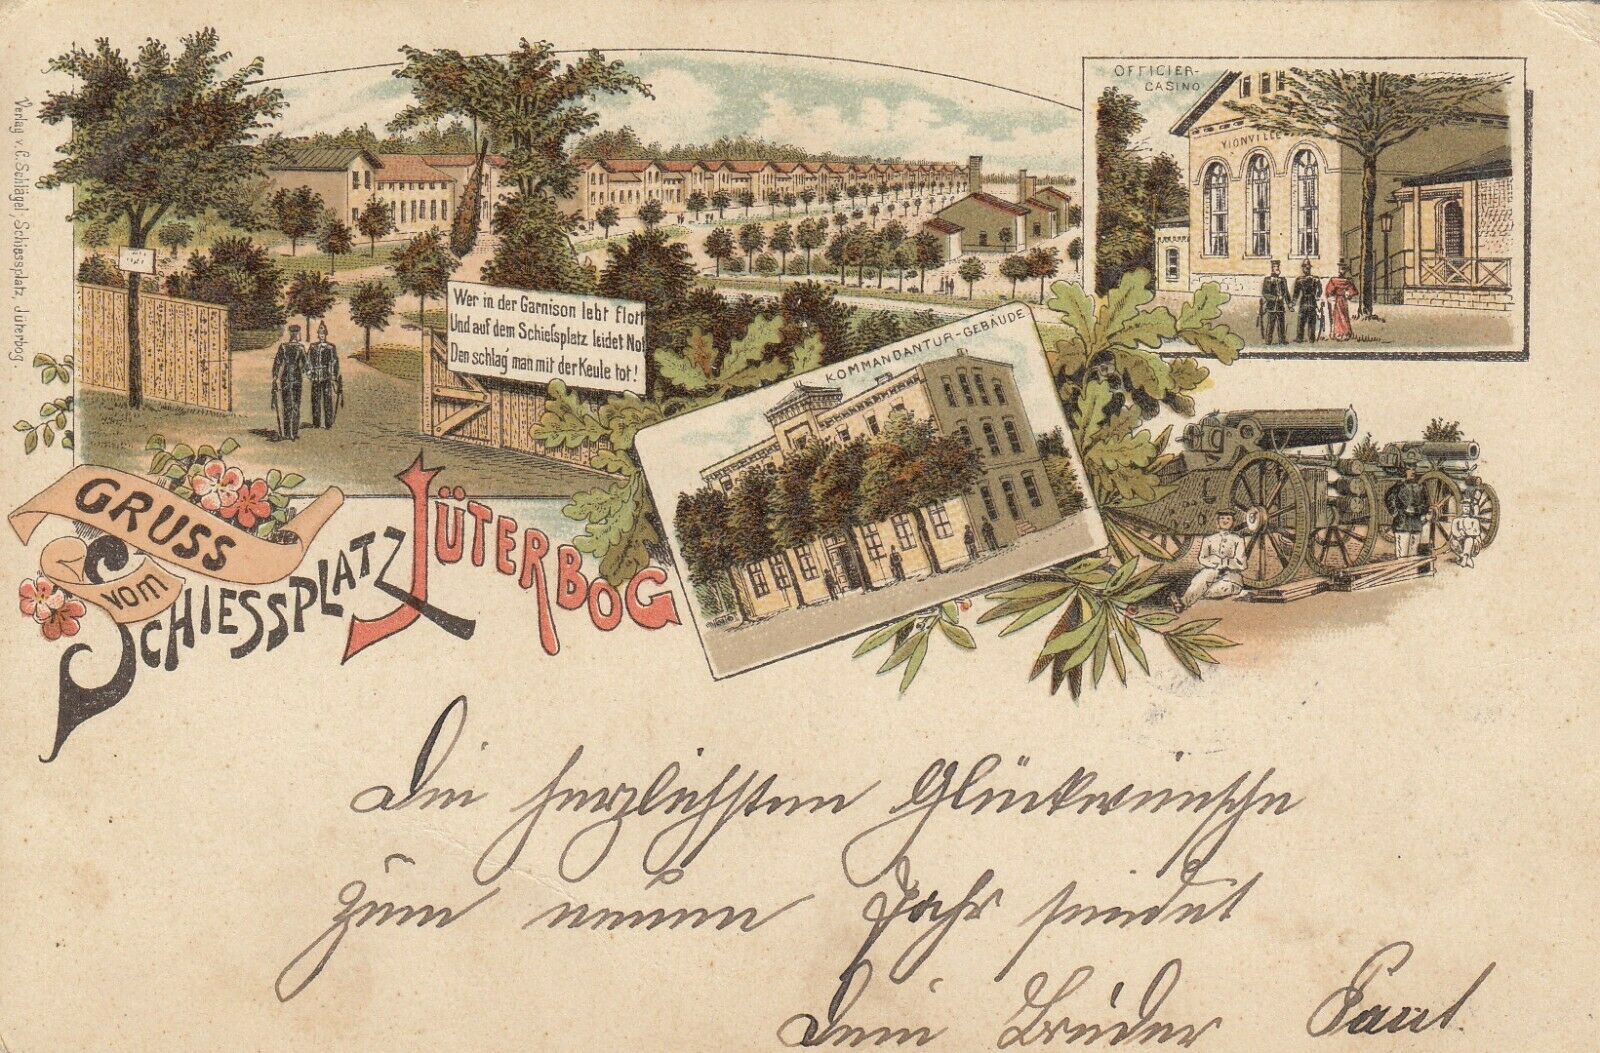 Verlag v. C. Schlägel, Schiessplatz, Jüterbog.
OFFICIER-
CASINO
VIONVILLE
Wer in der Garnison lebt flott
Und auf dem Schießplatz leidet Not
Den schlag man mit der Keule tot!
KOMMANDANTUR-GEBÄUDE
GRUSS
vom
SCHIESSPLATZ JÜTERBOG
Die herzlichsten Glückwünsche
zum neuen Jahr sendet
Dein Bruder Paul.